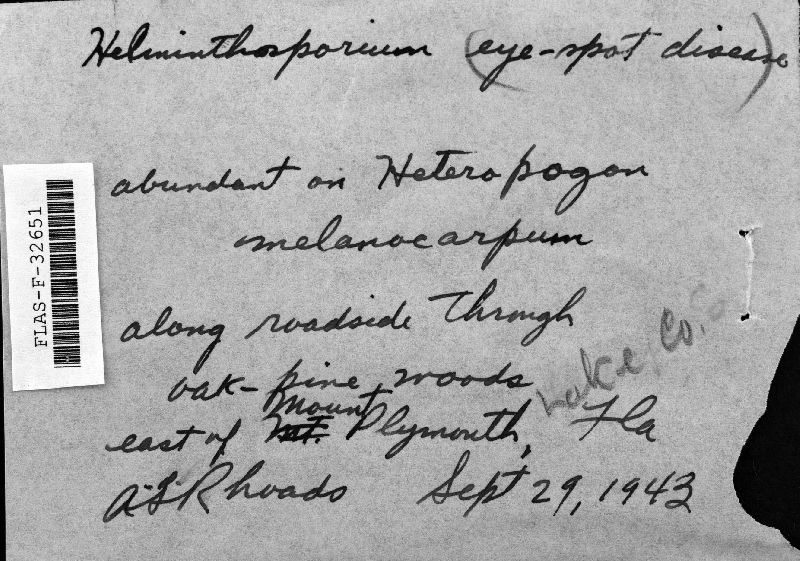 Helminthosporium (eye-spot disease)
abundant on Heteropogon
melanocarpum
along roadside through
oak-pine woods
Lake Co.
east of Mt. Mount Plymouth, Fla
A.S. Rhoads Sept 29, 1943
FLAS-F-32651